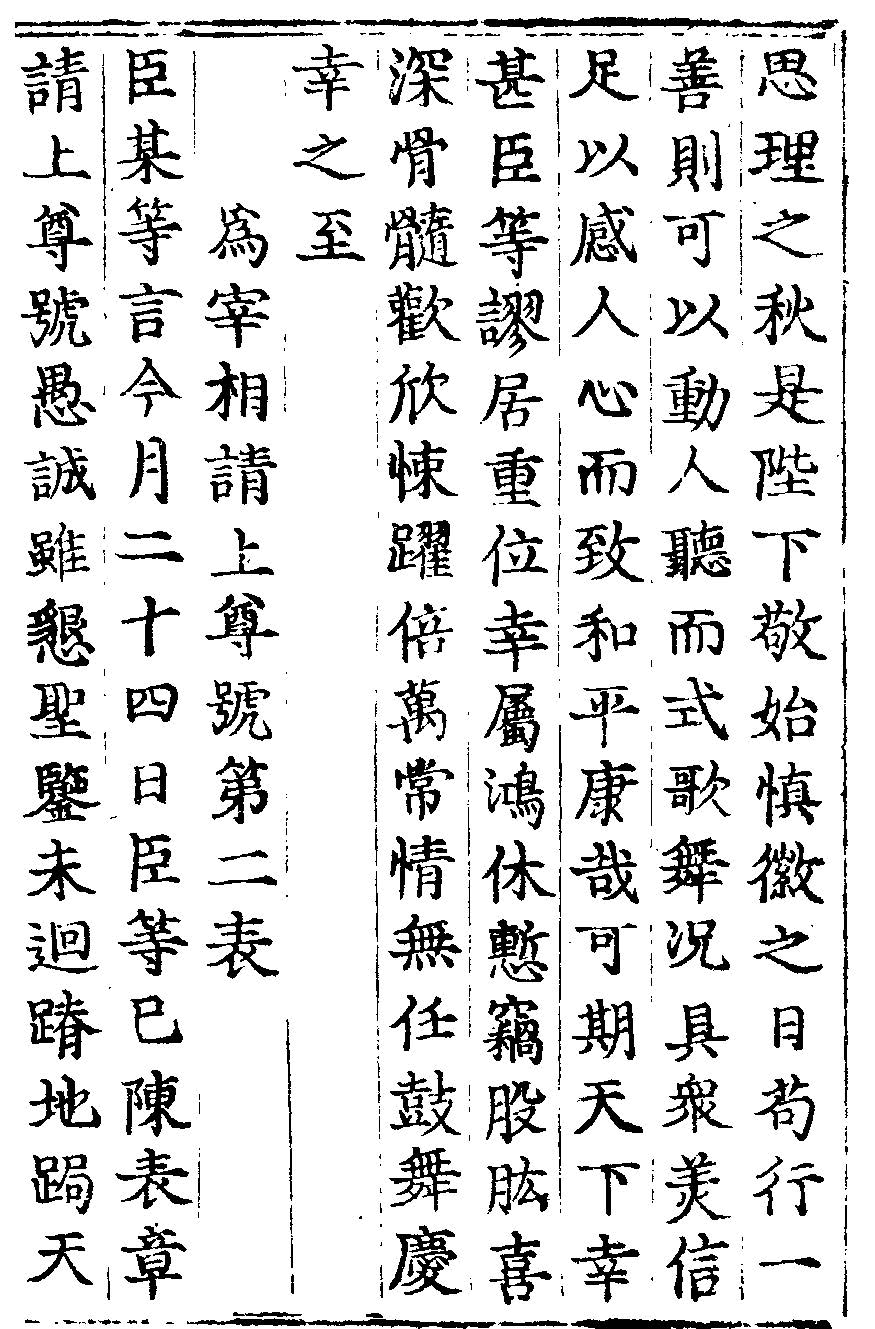 思理之秋是陛下敬始慎徽之日苟行一
善則可以動人聽而式歌舞況具衆美信
足以感人心而致和平康哉可期天下幸
甚臣等謬居重位幸屬鴻休慙竊股肱喜
深骨髓歡欣悚躍倍萬常情無任鼓舞慶
幸之至
爲宰相請上尊號第二表
臣某等言今月二十四日臣等已陳表章
請上尊號愚誠雖懇聖鑒未迴蹐地跼天